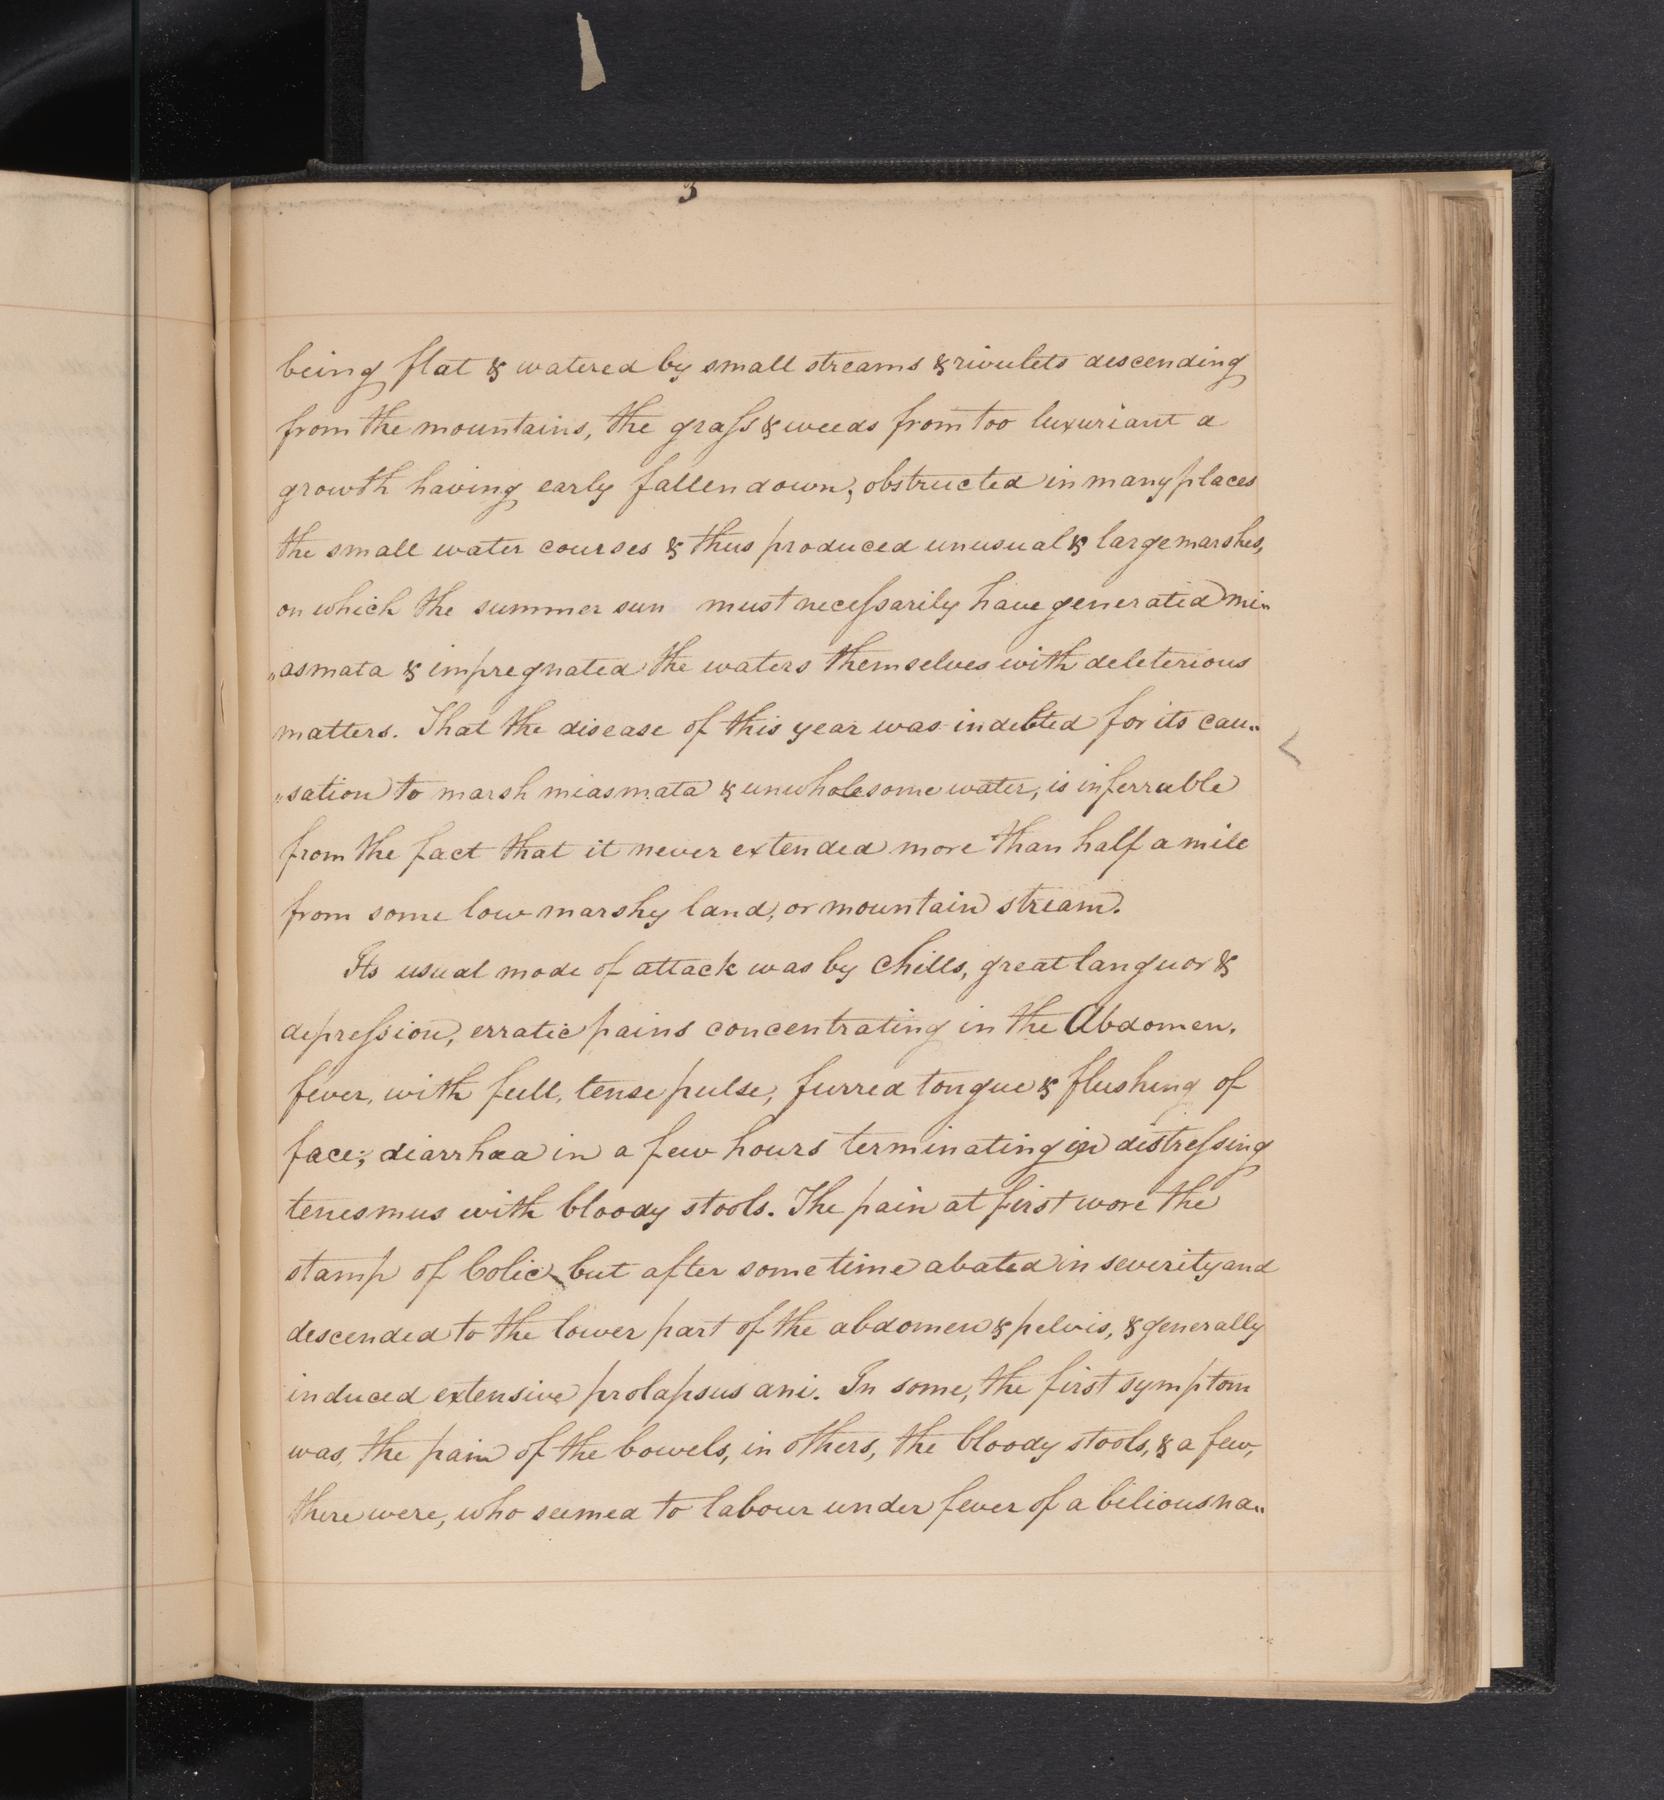 3
being flat & watered by small streams & rivulets descending
from the mountains, the grass & weeds from too luxuriant a
growth having early fallen down, obstructed in many places
the small water courses & thus produced unusual & large marshes,
on which the summer sun must necessarily have generated mi„
„asmata & impregnated the waters themselves with deleterious
matters. That the disease of this year was indebted for its cau„
„sation to marsh miasmata & unwholesome water, is inferrable
from the fact that it never extended more than half a mile
from some low marshy land, or mountain stream.
Its usual mode of attack was by chills, great languor &
depression, erratic pains concentrating in the Abdomen,
fever, with full, tense pulse, furred tongue & flushing of
face; diarrhæa in a few hours terminating in distressing
tenesmus with bloody stools. The pain at first wore the
stamp of Colic, but after some time abated in severity and
descended to the lower part of the abdomen & pelvis, & generally
induced extensive prolapsus ani. In some, the first symptom
was, the pain of the bowels, in others, the bloody stools, & a few,
there were, who seemed to labour under fever of a bilious na„